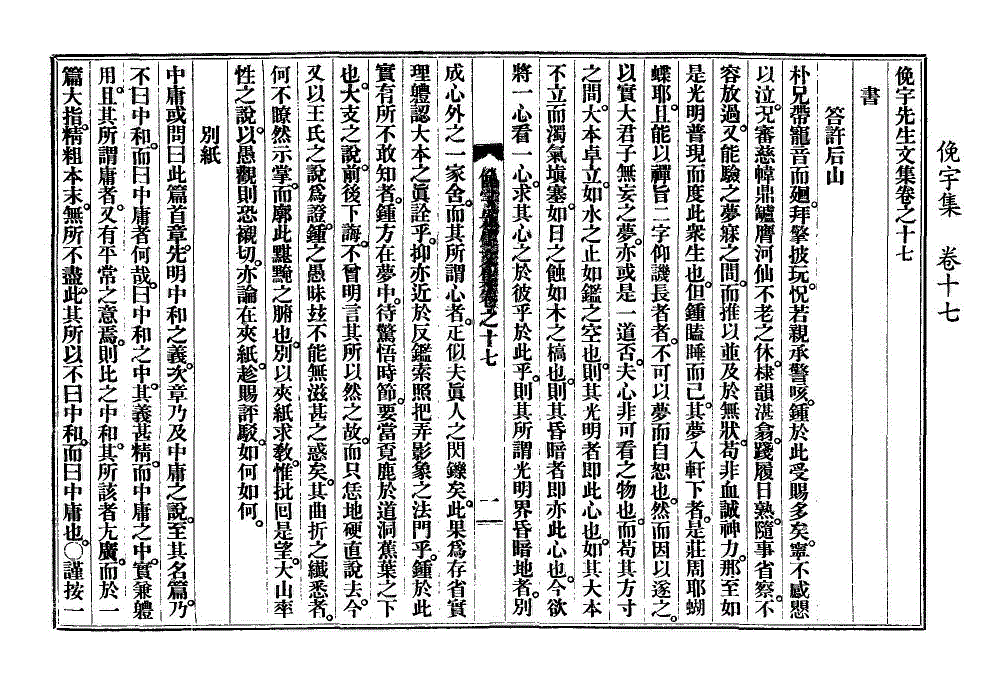 俛宇集 卷十七
俛宇先生文集卷之十七
書
答許后山
朴兄帶寵音而廻。拜擎披玩。怳若親承警咳。鍾於此受賜多矣。寧不感懇
以泣。况審慈幃鼎鑪膺河仙不老之休。棣韻湛翕。踐履日熟。隨事省察。不
容放過。又能驗之夢寐之間。而推以並及於無狀。苟非血誠神力。那至如
是光明普現而度此衆生也。但鍾瞌睡而已。其夢入軒下者。是莊周耶蝴
蝶耶。且能以禪旨二字仰譏長者者。不可以夢而自恕也。然而因以遂之
以實大君子無妄之夢。亦或是一道否。夫心非可看之物也。而苟其方寸
之間。大本卓立。如水之止如鑑之空也。則其光明者即此心也。如其大本
不立而濁氣塡塞。如日之蝕如木之槁也。則其昏暗者即亦此心也。今欲
將一心看一心。求其心之於彼乎於此乎。則其所謂光明界昏暗地者。別
俛宇先生文集卷之十七
一
成心外之一家舍。而其所謂心者。正似夫眞人之閃鑠矣。此果爲存省實
理軆認大本之眞詮乎。抑亦近於反鑑索照把弄影象之法門乎。鍾於此
實有所不敢知者。鍾方在夢中。待驚悟時節。要當覓鹿於道洞蕉葉之下
也。大支之說。前後下誨。不曾明言其所以然之故。而只恁地硬直說去。今
又以王氏之說爲證。鍾之愚昧玆不能無滋甚之惑矣。其曲折之纖悉者。
何不瞭然示掌。而廓此黮黤之腑也。別以夾紙求敎。惟批回是望。大山率
性之說。以愚觀則恐襯切。亦論在夾紙。趁賜評駁。如何如何。
別紙
中庸或問曰此篇首章。先明中和之義。次章乃及中庸之說。至其名篇。乃
不曰中和。而曰中庸者何哉。曰中和之中。其義甚精。而中庸之中。實兼軆
用。且其所謂庸者。又有平常之意焉。則比之中和。其所該者尤廣。而於一
篇大指。精粗本末。無所不盡。此其所以不曰中和。而曰中庸也。○謹按一